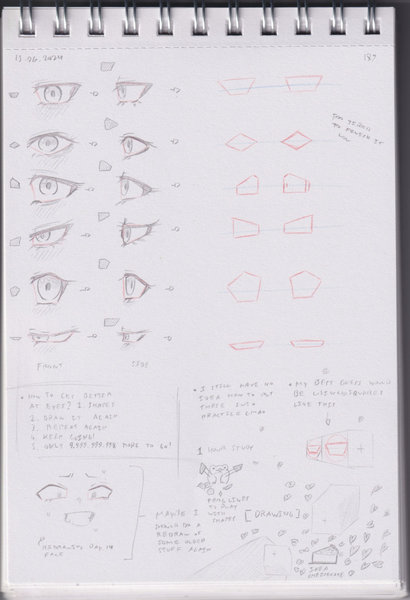 13.06.2024
187
I'M TIRED
TO FINISH IT
FRONT
SIDE
• HOW TO GET BETTER
AT EYES? 1. SHAPES
2. DRAW IT AGAIN
3. REPEAT AGAIN
4. KEEP GOING!
5. ONLY 9,999,999,998 MORE TO GO!
• I STILL HAVE NO
IDEA HOW TO PUT
THESE INTO
PRACTICE LMAO
• MY BEST GUESS WOULD
BE
LIKE THIS
1 HOUR STUDY
TO PLAY
WITH
SHAPES
[DRAWING]
MAYBE I
SHOULD DO A
REDRAW OF
SOME OLDER
STUFF AGAIN
DAY 14
FACE
IKEA